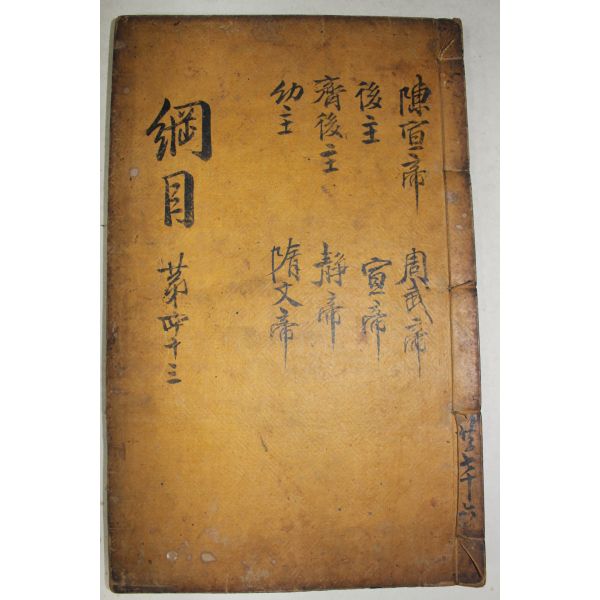 陳宣帝
後主
齊後主
幼主
周武帝
宣帝
靜帝
隋文帝
綱目
第四十三
共七十六